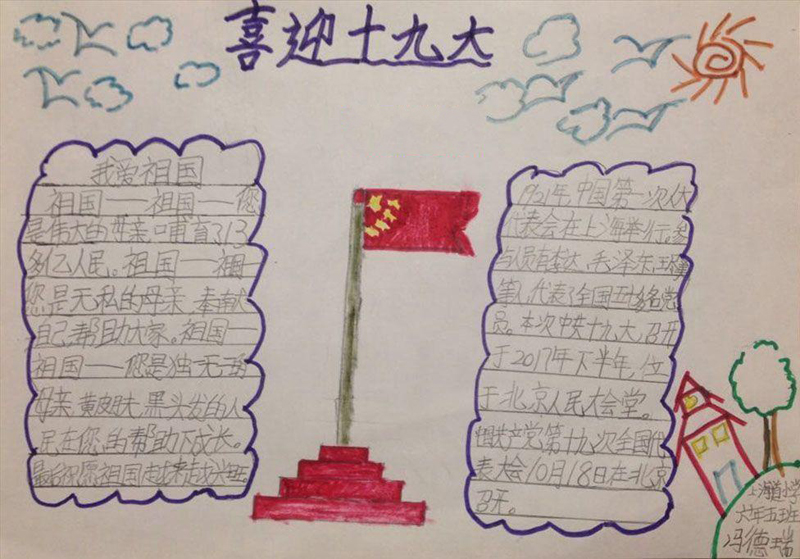 喜迎十九大
我爱祖国
祖国——祖国——您
是伟大的母亲哺育了13
多亿人民。祖国——祖国
您是无私的母亲 奉献
自己帮助大家。祖国——
祖国——您是独一无二的
母亲,黄皮肤,黑头发的人
民在您的帮助下成长。
最后祝愿祖国越来越
1921年,中国第一次
代表会在上海举行,参
与人员有李达,毛泽东,王
等人,代表了全国五十多名党
员。本次中共十九大,召开
于2017年下半年,位
于北京人民大会堂。
中国共产党第十九次全国代
表大会10月18日在北京
召开。
上海道小学
六年五班
冯德瑞